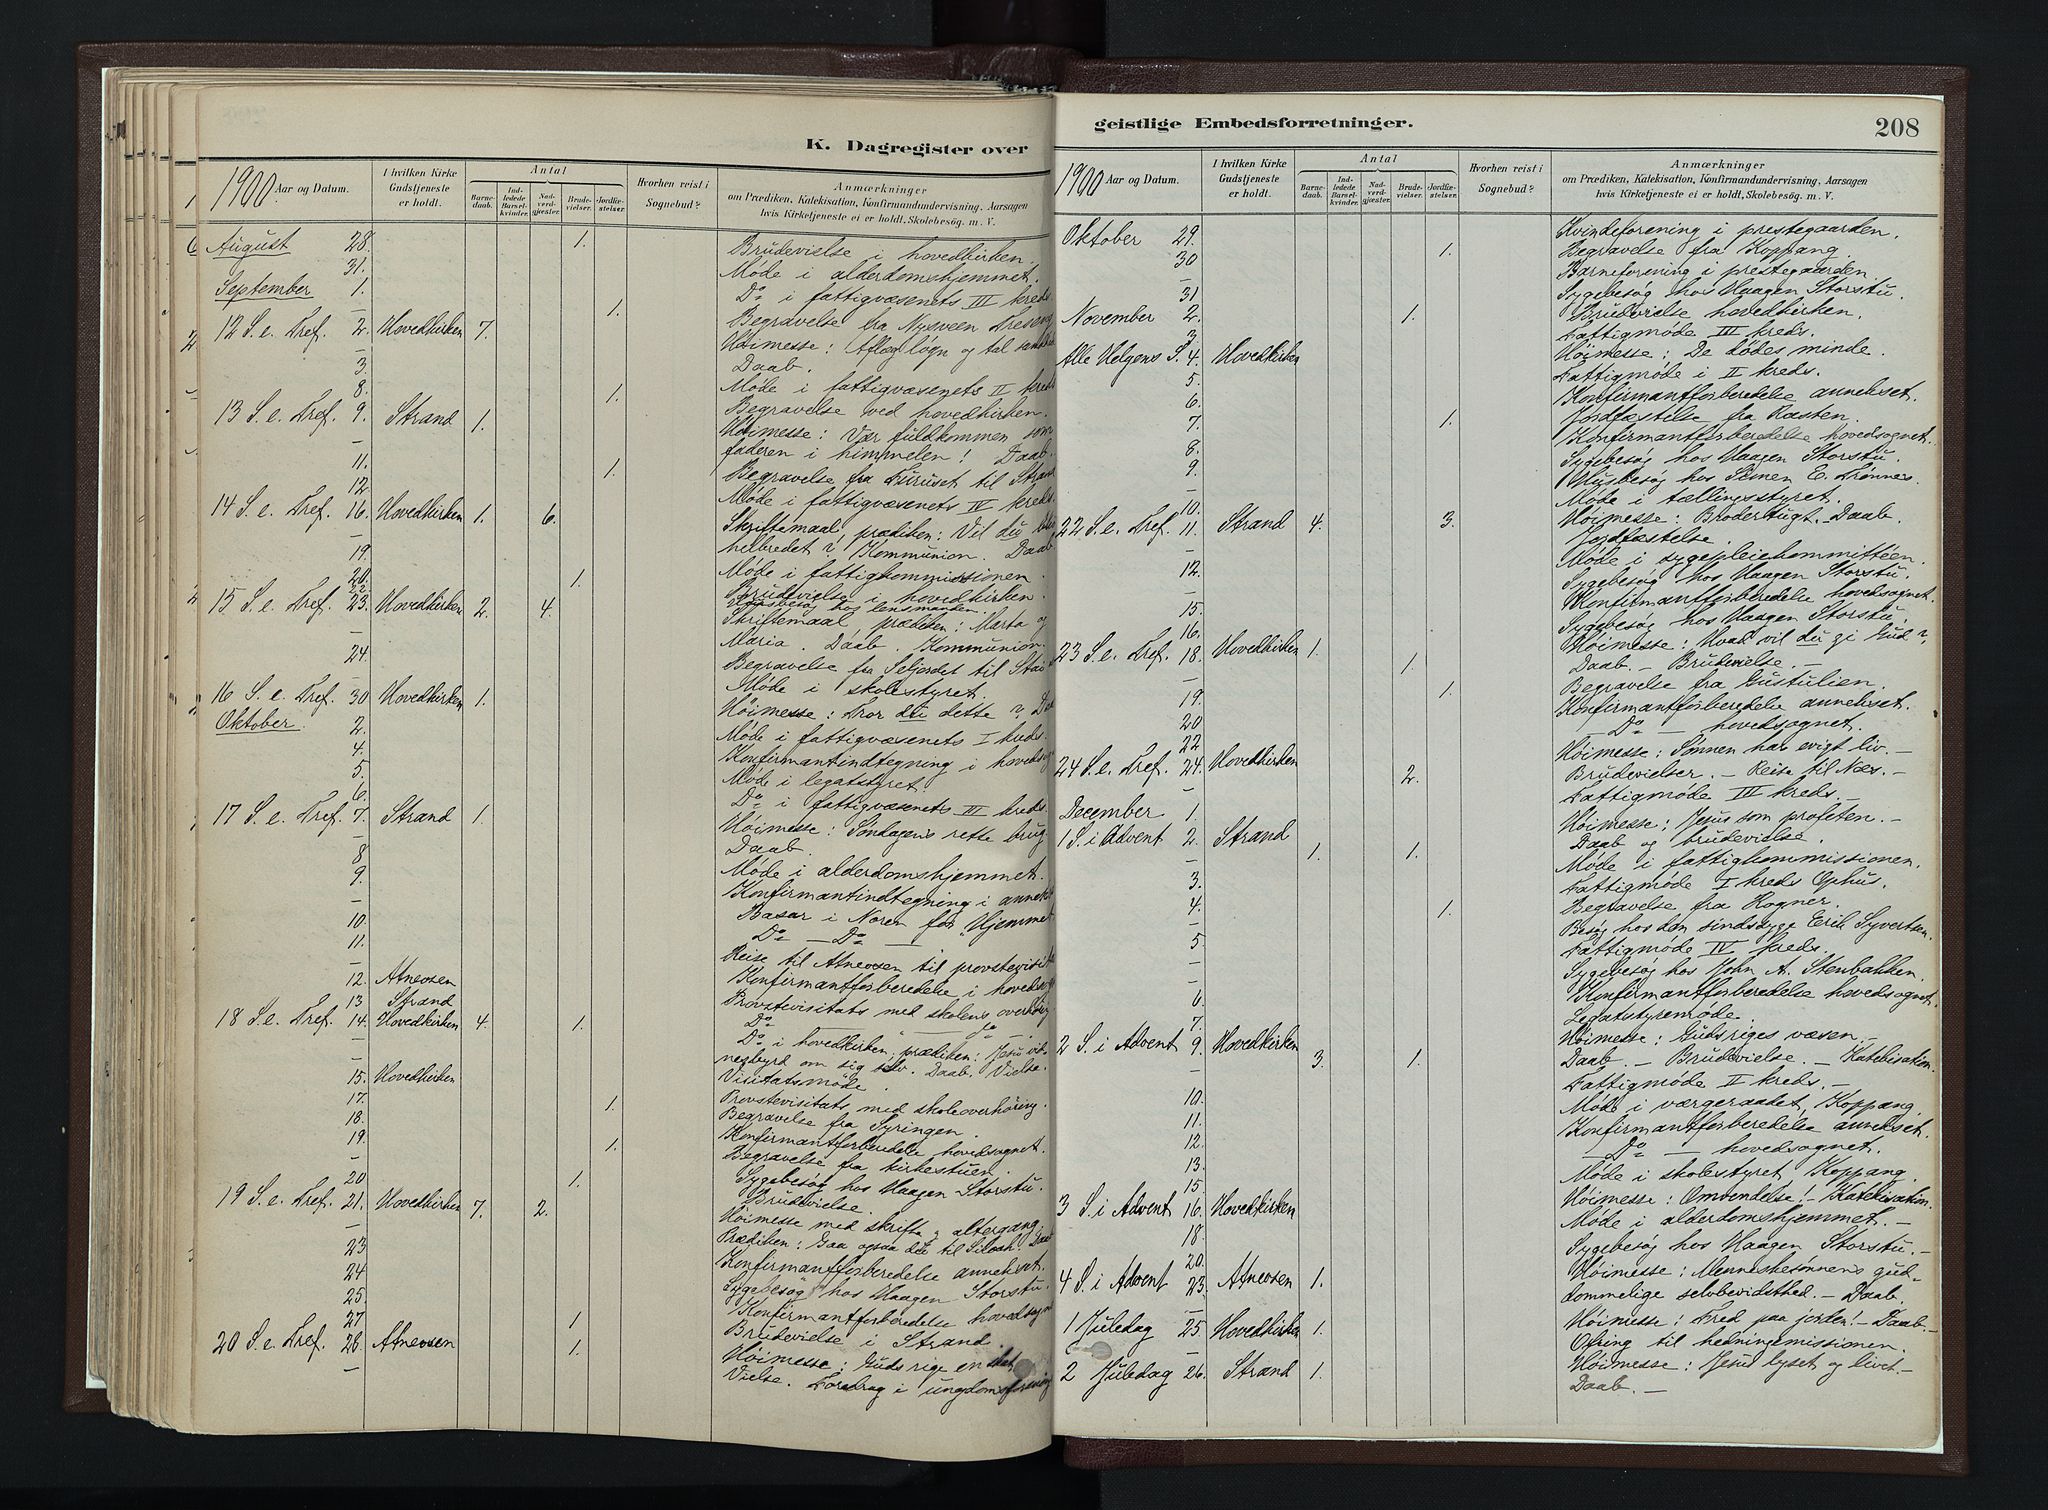 K. Dagregister over
1900. Aar og Datum.
I hvilken Kirke Gudstjeneste er holdt.
Antal
Barnedaab.
Indledede Barselkvinder.
Nadverdgjæster.
Brudevielser.
Jordfæstelser.
Hvorhen reist i Sognebud?
Anmærkninger
om Prædiken, Katekisation, Konfirmandundervisning, Aarsagen
hvis Kirketjeneste ei er holdt, Skolebesøg. m. V.
August 28. 1. Brudevielse i hovedkirken.
31. Møde i alderdomshjemmet.
September 1. Do i fattigvæsenets III kreds.
— 1. Begravelse fra Nysveen
12 S. e. Tref. 2. Hovedkirken 7. Høimesse: Aflæg løgn og tal
— Daab.
3. Møde i fattigvæsenets II kreds
8. 1. Begravelse ved hovedkirken.
13 S. e. Tref. 9. Strand 1. Høimesse: Vær fuldkommen som
— faderen i himmelen! Daab.
11. 1. Begravelse fra Furuset til Strand
12. Møde i fattigvæsenets IV kreds.
14 S. e. Tref. 16. Hovedkirken 1. 6. Skriftemaal, prædiken: Vil du
— helbredet? Kommunion. Daab
19. Møde i fattigkommissionen.
20. 1. Brudevielse i hovedkirken.
22. besøg hos lensmanden.
15 S. e. Tref. 23. Hovedkirken 2. 4. Skriftemaal, prædiken: Marta og
— Maria. Daab. Kommunion.
24. Begravelse fra til
— Møde i skolestyret.
16 S. e. Tref. 30 Hovedkirken 1. Høimesse: Tror du dette?
Oktober. 2. Møde i fattigvæsenets I kreds.
4. Konfirmantindtegning i
5. Møde i legatstyret.
6. Do i fattigvæsenets III kreds.
17 S. e. Tref. 7. Strand 1. Høimesse: Søndagens rette brug
— Daab.
8 Møde i alderdomshjemmet.
9. Konfirmantindtegning i
— Basar i Noren for "Hjemmet
10. Do — Do —
11. Reise til Atneosen til provstevisit
— Konfirmantforberedelse i
12. Atneosen Provstevisitats med skolens overhøring
13 Strand Do — Do —
18 S. e. Tref. 14. Hovedkirken 4. 1. Do i hovedkirken, prædiken: Jesu vid-
— nesbyrd om sig selv. Daab. Vielse.
— Visitatsmøde.
15. Hovedkirken Provstevisitats med skoleoverhøring.
17. 1. Begravelse fra Syringen.
18. Konfirmantforberedelse hovedsognet.
19. 1. Begravelse fra kirkestuen.
— Sygebesøg hos Haagen Storstu.
20 1. Brudevielse.
19 S. e. Tref. 21. Hovedkirken 7. 2. Høimesse med skrifte og altergang.
— Prædiken: Gaa ogsaa du til Siloah! Daab
23 Konfirmantforberedelse annekset.
24 Sygebesøg hos Haagen Storstu.
25 Konfirmantforberedelse
27 1. Brudevielse i Strand.
20 S. e. Tref. 28. Atneosen 1. Høimesse: Guds rige en skat
— Vielse. Foredrag i ungdomsforening
geistlige Embedsforretninger.
208
1900 Aar og Datum.
I hvilken Kirke Gudstjeneste er holdt.
Antal
Barnedaab.
Indledede Barselkvinder.
Nadverdgjæster.
Brudevielser.
Jordfæstelser.
Hvorhen reist i Sognebud?
Anmærkninger
om Prædiken, Katekisation, Konfirmandundervisning, Aarsagen
hvis Kirketjeneste ei er holdt, Skolebesøg. m. V.
Oktober 29. Kvindeforening i prestegaarden.
1. Begravelse fra Koppang.
30 Barneforening i prestegaarden.
— Sygebesøg hos Haagen Storstu.
31
November 2. 1. Brudevielse hovedkirken.
3 Fattigmøde III kreds.
Alle Helgens S. 4 Hovedkirken Høimesse: De dødes minde.
5. Fattigmøde i II kreds.
6. Konfirmantforberedelse annekset.
7. 1. Jordfæstelse fra Rasten.
8. Konfirmantforberedelse hovedsognet.
9. Sygebesøg hos Haagen Storstu.
— Husbesøg hos Simen E. Trønnes
10. Møde i tællingsstyret.
22 S. e. Tref. 11. Strand 4. 3. Høimesse: Brodertugt. Daab.
— Jordfæstelse.
12. Møde i sygepleiekommittéen.
— Sygebesøg hos Haagen Storstu.
15. Konfirmantforberedelse hovedsognet.
16. Sygebesøg hos Haagen Storstu.
23 S. e. Tref. 18. Hovedkirken 1. 1. Høimesse: Hvad vil du gi Gud?
— Daab — Brudevielse. —
19. 1. Begravelse fra Gustulien.
20 Konfirmantforberedelse annekset.
22 — Do — hovedsognet.
24 S. e. Tref. 24. Hovedkirken 2. Høimesse: Sønnen har evigt liv. —
— Brudevielser. — Reise til Næs. —
December 1. Fattigmøde III kreds. —
1 S. i Advent 2. Strand Høimesse: Jesus som profeten. —
— 1. 1. Daab og brudevielse.
3. Møde i fattigkommissionen.
— Fattigmøde I kreds Ophus.
4. 1. Begravelse fra Hogner.
— Besøg hos den sindssyge Erik Syvertsen.
5. Fattigmøde IV kreds.
— Sygebesøg hos John A. Stenbakken.
6. Konfirmantforberedelse hovedsognet.
7. Legatstyremøde.
2 S. i Advent 9. Hovedkirken Høimesse: Gudsriges væsen. —
— 3. 1. Daab — Brudevielse. — Katekisation.
10. Fattigmøde II kreds. —
11. Møde i værgeraadet, Koppang.
12. Konfirmantforberedelse annekset.
13. — Do — hovedsognet.
15 Møde i skolestyret Koppang.
3 S. i Advent 16. Hovedkirken Høimesse: Omvendelse! — Katekisation.
18. Møde i alderdomshjemmet. —
20. Sygebesøg hos Haagen Storstu. —
4 S. i Advent 23. Atneosen 1. Høimesse: Menneskesønnens gud-
— dommelige selvbevidsthed. — Daab.
1 Juledag 25 Hovedkirken 1. Høimesse: Fred paa jorden! — Daab. —
— Ofring til hedningemissionen.
2 Juledag 26. Strand 1. Høimesse: Jesus lyset og livet. —
Daab. —